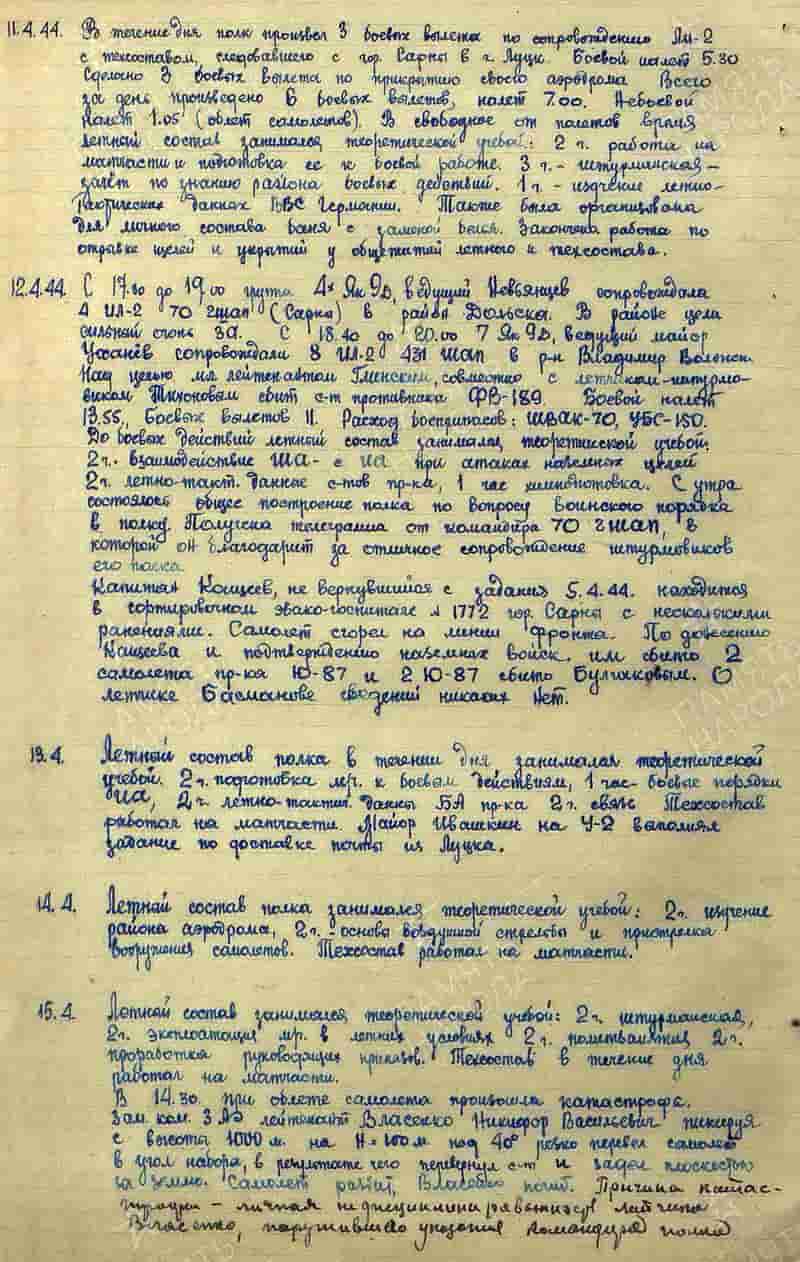 11.4.44. В течение дня полк произвел 3 боевых вылета по сопровождению Ли-2
с техсоставом, следовавшего с гор. Сарны в г. Луцк. Боевой налет 5.30
Сделано 3 боевых вылета по прикрытию своего аэродрома Всего
за день произведено 6 боевых вылетов, налет 7.00. Небоевой
налет 1.05 (облет самолетов). В свободное от полетов время
летный состав занимался теоретической учебой: 2 ч. работа на
матчасти и подготовка ее к боевой работе. 3 ч. - штурманская -
зачет по знанию района боевых действий. 1 ч. - изучение летно-
тактических данных ВВС Германии. Также была организована
для личного состава баня с заменой белья. Закончена работа по
отрывке щелей и укрытий у общежитий летного и техсостава.
12.4.44. С 17.30 до 19.00 группа 4х Як 9Д, ведущий Невьянцев сопровождала
4 ИЛ-2 70 гшап (Сарны) в район Дольска. В районе цела
сильный огонь ЗА. С 18.40 до 20.00 7 Як 9Д, ведущий майор
Уханёв сопровождали 8 ИЛ-2 431 шап в р-н Владимир Волынск.
Над целью мл. лейтенантом Глинским, совместно с летчиком-штурмо-
виком Тихоновым сбит с-т противника ФВ-189. Боевой налет
13.55, Боевых вылетов 11. Расход боеприпасов: ШВАК-70, УБС-150.
До боевых действий летный состав занимался теоретической учебой:
2 ч. взаимодействие ША - с ИА при атаках наземных целей
2 ч. летно-такт. данные с-тов пр-ка, 1 час химподготовка. С утра
состоялось общее построение полка по вопросу воинского порядка
в полку. Получена телеграмма от командира 70 гшап, в
которой он благодарит за отличное сопровождение штурмовиков
его полка
Капитан Кощеев, не вернувшийся с задания 5.4.44. находится
в сортировочном эвако-госпитале № 1772 гор. Сарны с несколькими
ранениями. Самолет сгорел на линии фронта. По донесению
Кащеева и подтверждению наземных войск. им сбито 2
самолета пр-ка Ю-87 и 2 Ю-87 сбито Булгаковым. О
летчике Басманове сведений никаких нет.
13.4. Летный состав полка в течении дня занимался теоретической
учебой. 2 ч. подготовка м/ч. к боевым действиям, 1 час - боевые порядки
ИА, 2 ч. летно-тактич. данны БА пр-ка 2 ч. связь Техсостав
работал на матчасти Майор Ивашкин на У-2 выполнял
задание по доставке почты из Луцка.
14.4. Летный состав полка занимался теоретической учебой: 2 ч. изучение
района аэродрома, 2 ч. - основы воздушной стрельбы и пристрелка
вооружения самолетов. Техсостав работал на матчасти.
15.4. Летный состав занимался теоретической учебой: 2 ч. штурманская,
2 ч. эксплоатация м/ч. в летних условиях 2 ч. политзанятия 2 ч.
проработка руководящих приказов. Техсостав в течение дня
работал на матчасти.
В 14.30. при облете самолета произошла катастрофа.
Зам. ком. 3 АЭ лейтенант Власенко Никифор Васильевич пикируя
с высоты 1000 м. на Н=100 м под 40° резко перевел самолет
в угол набора, в результате чего перевернул с-т и задел плоскостью
за землю. Самолет разбит, Власенко погиб. Причина катас-
трофы - личная недисциплинированность летчика
Власенко, нарушившего указания командира полка